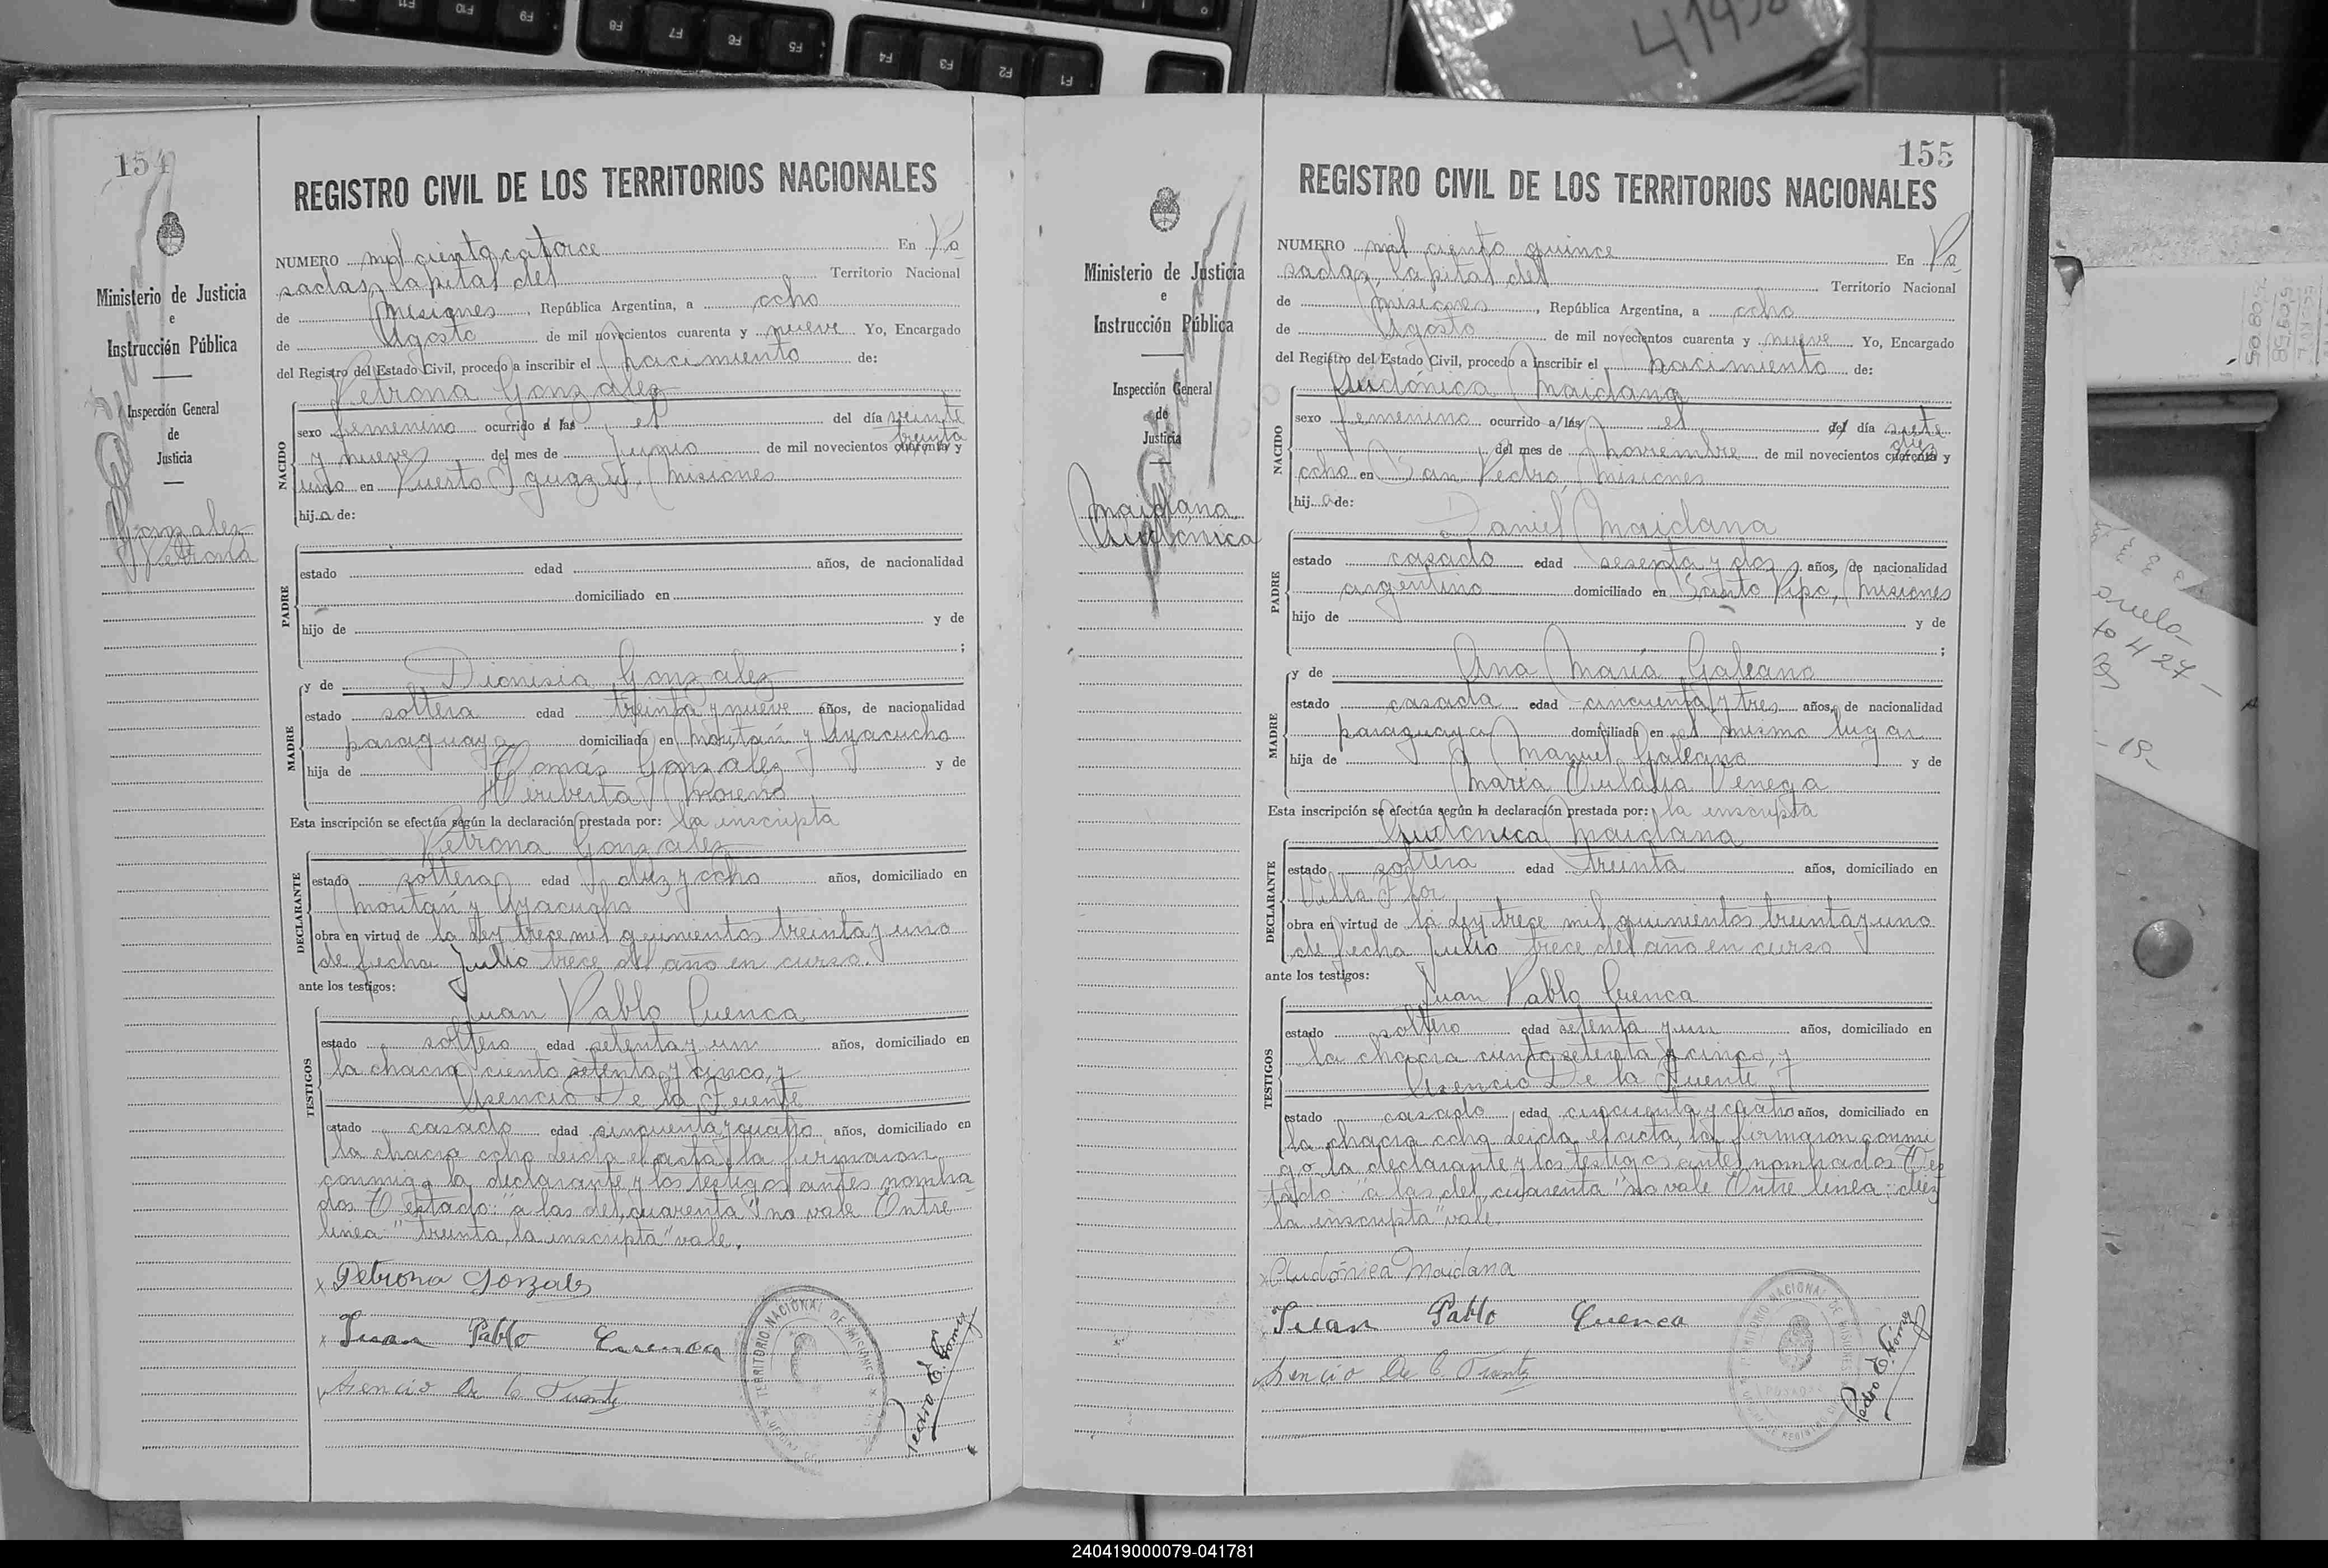 154
REGISTRO CIVIL DE LOS TERRITORIOS NACIONALES
Ministerio de Justicia
e
Instrucción Pública
Inspección General
de
Justicia
Gonzalez
Petrona
NUMERO mil ciento catorce En Po
sadas, Capital del Territorio Nacional
de Misiones, República Argentina, a ocho
de Agosto de mil novecientos cuarenta y nueve Yo, Encargado
del Registro del Estado Civil, procedo a inscribir el nacimiento de:
Petrona Gonzalez
NACIDO
sexo femenino ocurrido a las el del día veinte
y nueve del mes de Junio de mil novecientos cuarenta treinta y
uno en Puerto Iguazú, Misiones
hija de:
PADRE
estado edad años, de nacionalidad
domiciliado en
hijo de y de
;
y de Dionisia Gonzalez
MADRE
estado soltera edad treinta y nueve años, de nacionalidad
paraguaya domiciliada en Moritán y Ayacucho
hija de Tomás Gonzalez y de
Heriberta Moreno
Esta inscripción se efectúa según la declaración prestada por: la inscripta
Petrona Gonzalez
DECLARANTE
estado soltera edad diez y ocho años, domiciliado en
Moritán y Ayacucho
obra en virtud de la Ley trece mil quinientos treinta y uno
de fecha Julio trece del año en curso.
ante los testigos:
Juan Pablo Cuenca
TESTIGOS
estado soltero edad setenta y un años, domiciliado en
la chacra ciento setenta y cinco, y
Asencio De la Fuente
estado casado edad cincuenta y cuatro años, domiciliado en
la chacra ocho Leida el acta, la firmaron
conmigo la declarante y los testigos antes nombra
dos Testado: "a las del, cuarenta" no vale Entre
linea: "treinta, la inscripta" vale.
x Petrona Gonzales
x Juan Pablo Cuenca
x Asencio De la Fuente
TERRITORIO NACIONAL DE MISIONES
Pedro E. Gomez
155
REGISTRO CIVIL DE LOS TERRITORIOS NACIONALES
Ministerio de Justicia
e
Instrucción Pública
Inspección General
de
Justicia
Maidana
Cludónica
NUMERO mil ciento quince En Po
sadas, Capital del Territorio Nacional
de Misiones, República Argentina, a ocho
de Agosto de mil novecientos cuarenta y nueve Yo, Encargado
del Registro del Estado Civil, procedo a inscribir el nacimiento de:
Cludónica Maidana
NACIDO
sexo femenino ocurrido a las el del día siete
del mes de noviembre de mil novecientos cuarenta diez y
ocho en San Pedro, Misiones
hija de:
Daniel Maidana
PADRE
estado casado edad sesenta y dos años, de nacionalidad
argentino domiciliado en Santo Pipó, Misiones
hijo de y de
;
y de Ana María Galeano
MADRE
estado casada edad cincuenta y tres años, de nacionalidad
paraguaya domiciliada en el mismo lugar
hija de Manuel Galeano y de
María Eulalia Venega
Esta inscripción se efectúa según la declaración prestada por: la inscripta
Cludónica Maidana
DECLARANTE
estado soltera edad treinta años, domiciliado en
Villa Flor
obra en virtud de la Ley trece mil quinientos treinta y uno
de fecha Julio trece del año en curso
ante los testigos:
Juan Pablo Cuenca
TESTIGOS
estado soltero edad setenta y un años, domiciliado en
la chacra ciento setenta y cinco, y
Asencio De la Fuente
estado casado edad cincuenta y cuatro años, domiciliado en
la chacra ocho Leida el acta, la firmaron conmi
go la declarante y los testigos antes nombrados Tes
tado: "a las del, cuarenta" no vale Entre linea: diez
la inscripta" vale.
x Cludónica Maidana
Juan Pablo Cuenca
Asencio De la Fuente
TERRITORIO NACIONAL DE MISIONES
Pedro E. Gomez
240419000079-041781